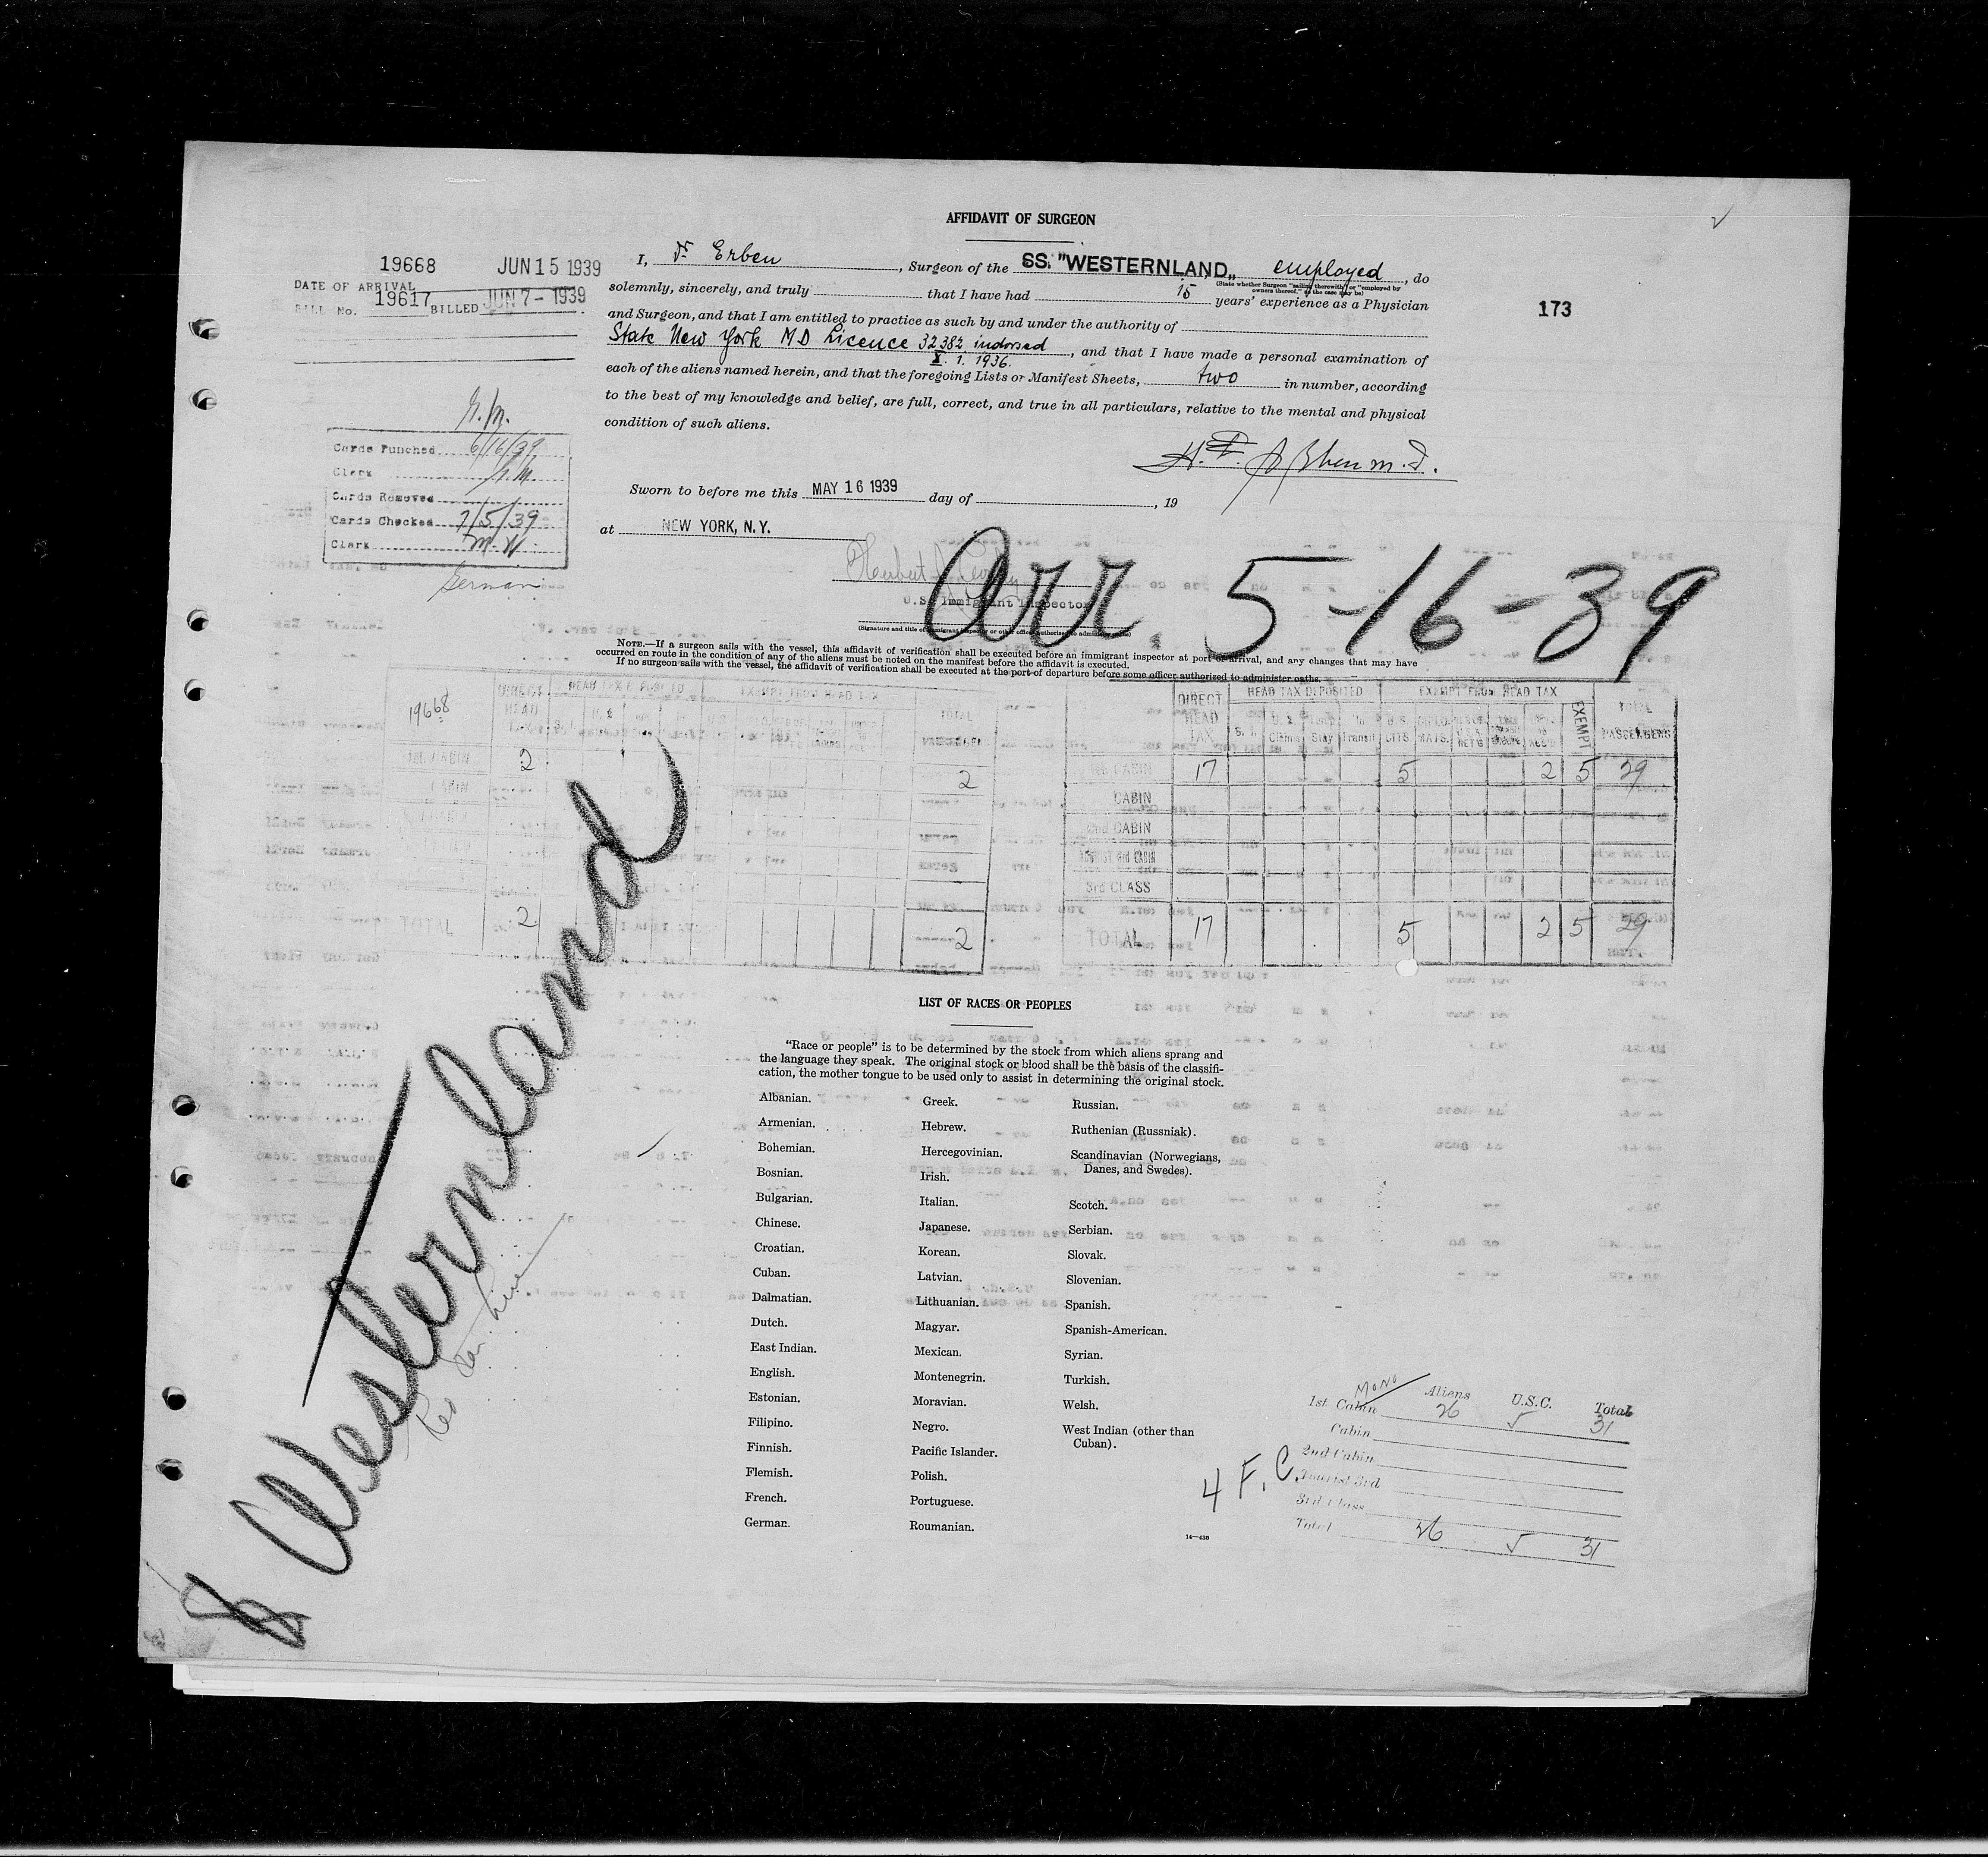 AFFIDAVIT OF SURGEON
19668 JUN 15 1939
DATE OF ARRIVAL
BILL No. 19617 BILLED JUN 7 - 1939
173
I, Dr Erben, Surgeon of the SS. "WESTERNLAND" employed, do
(State whether Surgeon "sailing therewith" or "employed by owners thereof," as the case may be)
solemnly, sincerely, and truly that I have had 15 years' experience as a Physician
and Surgeon, and that I am entitled to practice as such by and under the authority of
State New York MD Licence 32382 indorsed
X. 1. 1936.
, and that I have made a personal examination of
each of the aliens named herein, and that the foregoing Lists or Manifest Sheets, two in number, according
to the best of my knowledge and belief, are full, correct, and true in all particulars, relative to the mental and physical
condition of such aliens.
Cards Punched 6/16/39
Clerk
Cards Removed
Cards Checked 7/5/39
Clerk M.W.
German
Sworn to before me this MAY 16 1939 day of , 19
at NEW YORK, N.Y.
U.S. Immigrant Inspector
(Signature and title of immigrant inspector or other officer authorized to administer oaths)
Arr. 5-16-39
NOTE.—If a surgeon sails with the vessel, this affidavit of verification shall be executed before an immigrant inspector at port of arrival, and any changes that may have
occurred en route in the condition of any of the aliens must be noted on the manifest before the affidavit is executed.
If no surgeon sails with the vessel, the affidavit of verification shall be executed at the port of departure before some officer authorized to administer oaths.
19668
DIRECT HEAD TAX
TOTAL
1st. CABIN 2 2
CABIN
TOTAL 2 2
DIRECT HEAD TAX
HEAD TAX DEPOSITED
EXEMPT FROM HEAD TAX
TOTAL PASSENGERS
S. I. Claims Stay Transit U.S. CITS. DIPLOMATS. EXEMPT
1st CABIN 17 5 2 5 29
CABIN
2nd CABIN
TOURIST 3rd CABIN
3rd CLASS
TOTAL 17 5 2 5 29
Westernland
Red Star Line
LIST OF RACES OR PEOPLES
"Race or people" is to be determined by the stock from which aliens sprang and
the language they speak. The original stock or blood shall be the basis of the classifi-
cation, the mother tongue to be used only to assist in determining the original stock.
Albanian.
Armenian.
Bohemian.
Bosnian.
Bulgarian.
Chinese.
Croatian.
Cuban.
Dalmatian.
Dutch.
East Indian.
English.
Estonian.
Filipino.
Finnish.
Flemish.
French.
German.
Greek.
Hebrew.
Hercegovinian.
Irish.
Italian.
Japanese.
Korean.
Latvian.
Lithuanian.
Magyar.
Mexican.
Montenegrin.
Moravian.
Negro.
Pacific Islander.
Polish.
Portuguese.
Roumanian.
Russian.
Ruthenian (Russniak).
Scandinavian (Norwegians,
Danes, and Swedes).
Scotch.
Serbian.
Slovak.
Slovenian.
Spanish.
Spanish-American.
Syrian.
Turkish.
Welsh.
West Indian (other than
Cuban).
14—430
MONO
Aliens U.S.C. Total
1st Cabin 26 5 31
Cabin
2nd Cabin
Tourist 3rd
3rd Class
Total 26 5 31
4 F.C